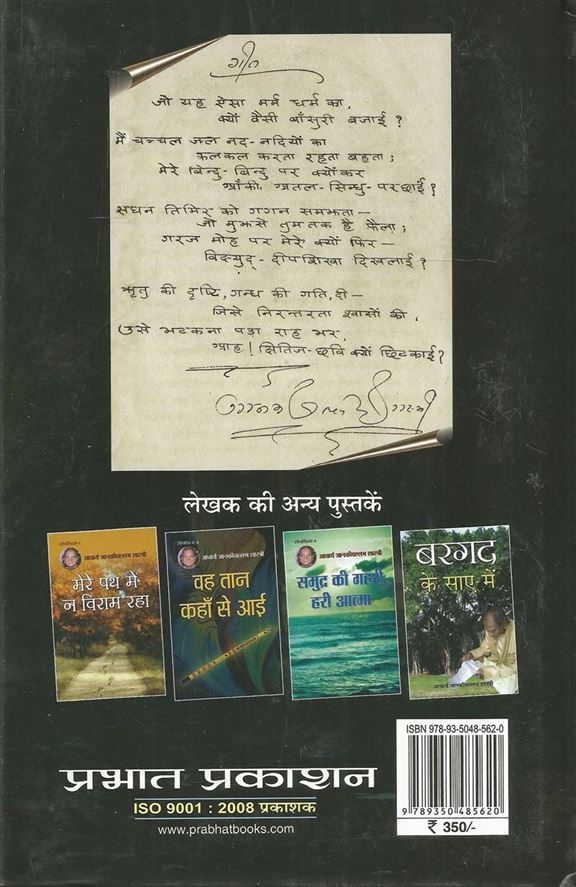 गीत
जो यह ऐसा मर्म धर्म का,
क्यों वैसी बाँसुरी बजाई ?
मैं चञ्चल जल नद-नदियों का
कलकल करता रहता बहता ;
मेरे बिन्दु-बिन्दु पर क्योंकर
आँकी अतल-सिन्धु-परछाईं ?
सघन तिमिर को गगन समझता—
जो मुझसे तुम तक है फैला ;
गरज मोह पर मेरे क्यों फिर—
विद्युद्-दीपशिखा दिखलाई ?
ऋतु की दृष्टि, गन्ध की गति, दी—
जिसे निरन्तरता श्वासों की,
उसे भटकना पड़ा राह भर,
आह ! क्षितिज-छवि क्यों छिटकाई ?
लेखक की अन्य पुस्तकें
आचार्य जानकीवल्लभ शास्त्री
मेरे पथ में
न विराम रहा
आचार्य जानकीवल्लभ शास्त्री
वह तान
कहाँ से आई
आचार्य जानकीवल्लभ शास्त्री
समुद्र की गहरी
हरी आत्मा
बरगद
के साए में
आचार्य जानकीवल्लभ शास्त्री
प्रभात प्रकाशन
ISO 9001 : 2008 प्रकाशक
www.prabhatbooks.com
ISBN 978-93-5048-562-0
9 789350 485620
₹ 350/-